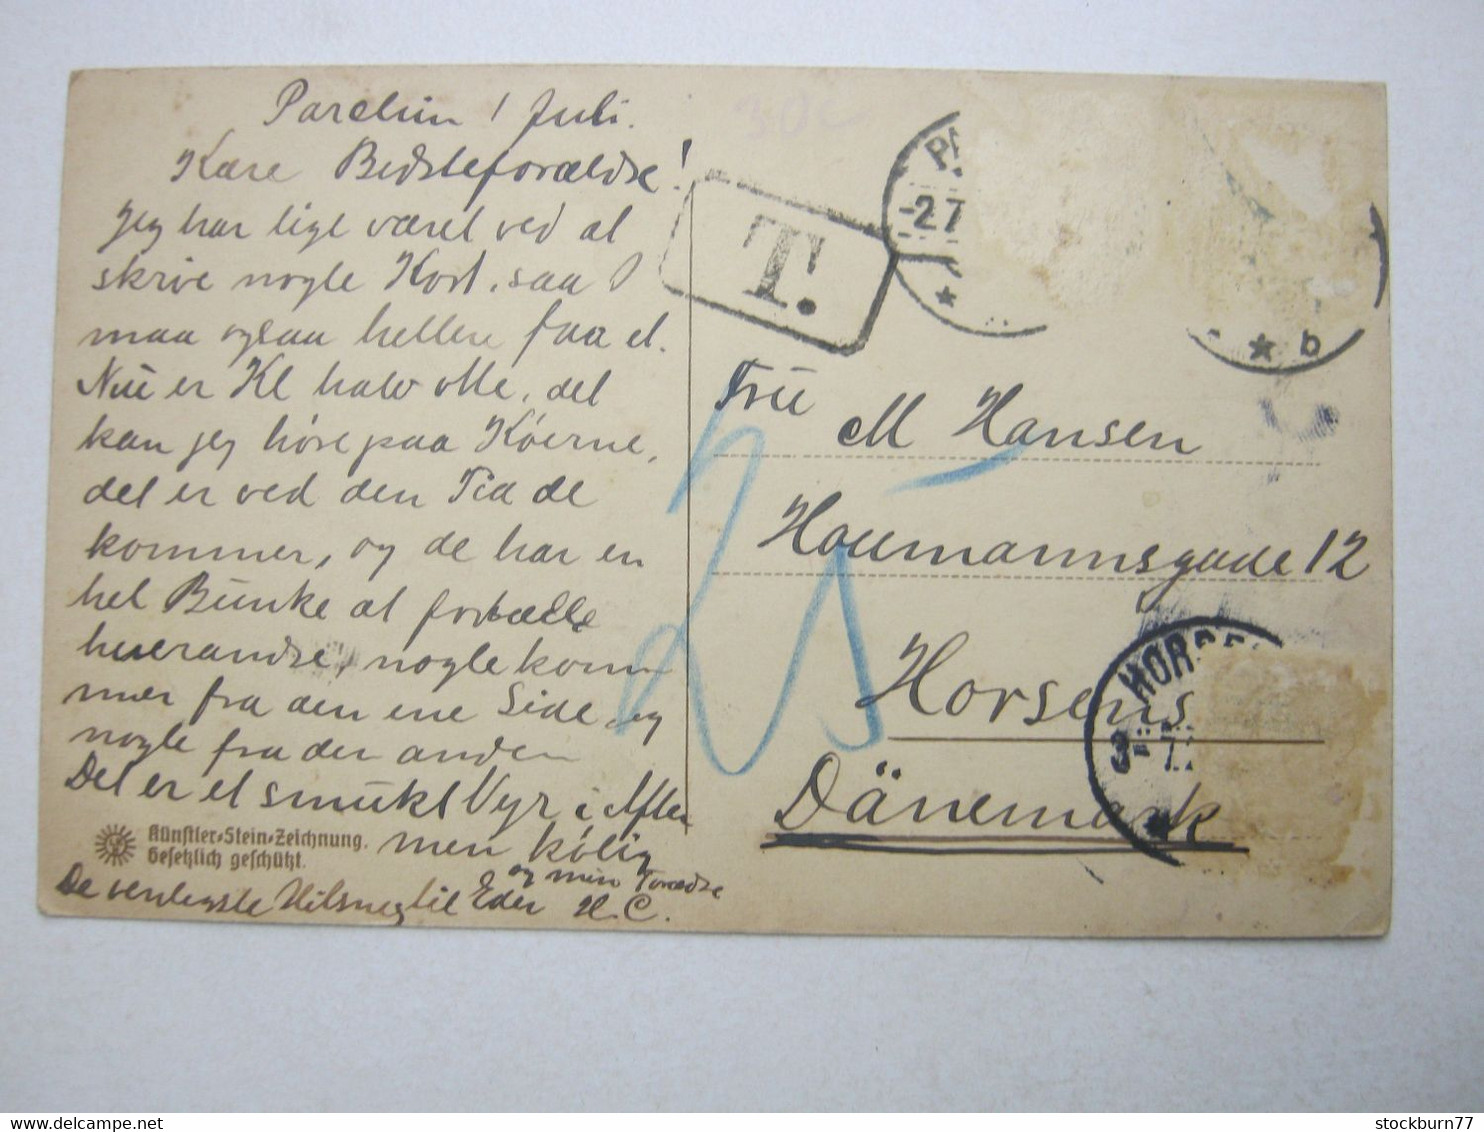 Parchim 1 Juli.
Kære Bedsteforældre!
Jeg har lige været ved at
skrive nogle Kort, saa I
maa ogsaa hellere faa et.
Nu er Kl halv otte, det
kan jeg høre paa Køerne,
det er ved den Tid de
kommer, og de har en
hel Bunke at fortælle
hverandre, nogle kom
mer fra den ene Side og
nogle fra den anden
Det er et smukt Vejr i Aften
men kølig
De venligste Hilsner til Eder og min Forældre
H.C.
Künstler-Stein-Zeichnung.
Gesetzlich geschützt.
30c
T.
PA
-2 7
* *
b
25
Fru
M Hansen
Houmannsgade 12
Horsens
Dänemark
HORSE
3- 7
stockburn77